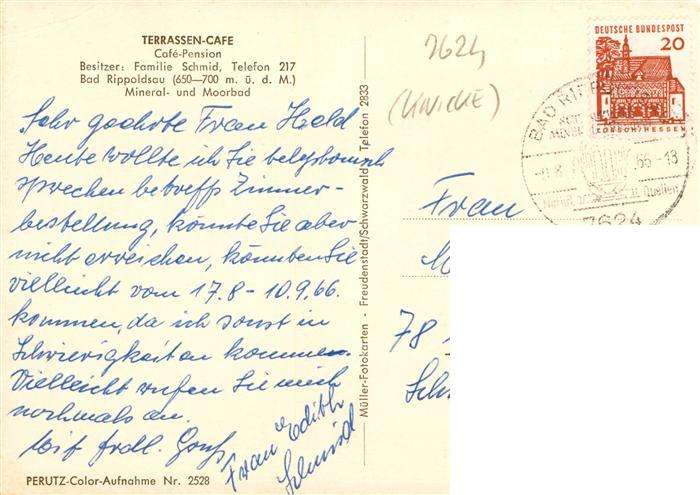 TERRASSEN-CAFE
Café-Pension
Besitzer: Familie Schmid, Telefon 217
Bad Rippoldsau (650—700 m. ü. d. M.)
Mineral- und Moorbad
Sehr geehrte Frau Held
Heute wollte ich Sie telephonisch
sprechen betreff Zimmer-
bestellung, konnte Sie aber
nicht erreichen, könnten Sie
vielleicht vom 17.8 - 10.9.66.
kommen, da ich sonst in
Schwierigkeiten komme.
Vielleicht rufen Sie mich
nochmals an.
Mit frdl. Gruß
Frau Edith
Schmid
PERUTZ-Color-Aufnahme Nr. 2528
Müller-Fotokarten · Freudenstadt/Schwarzwald · Telefon 2833
7624
DEUTSCHE BUNDESPOST
20
LORSCH/HESSEN
BAD RIPP
66-13
Quellen
7624
Frau
78